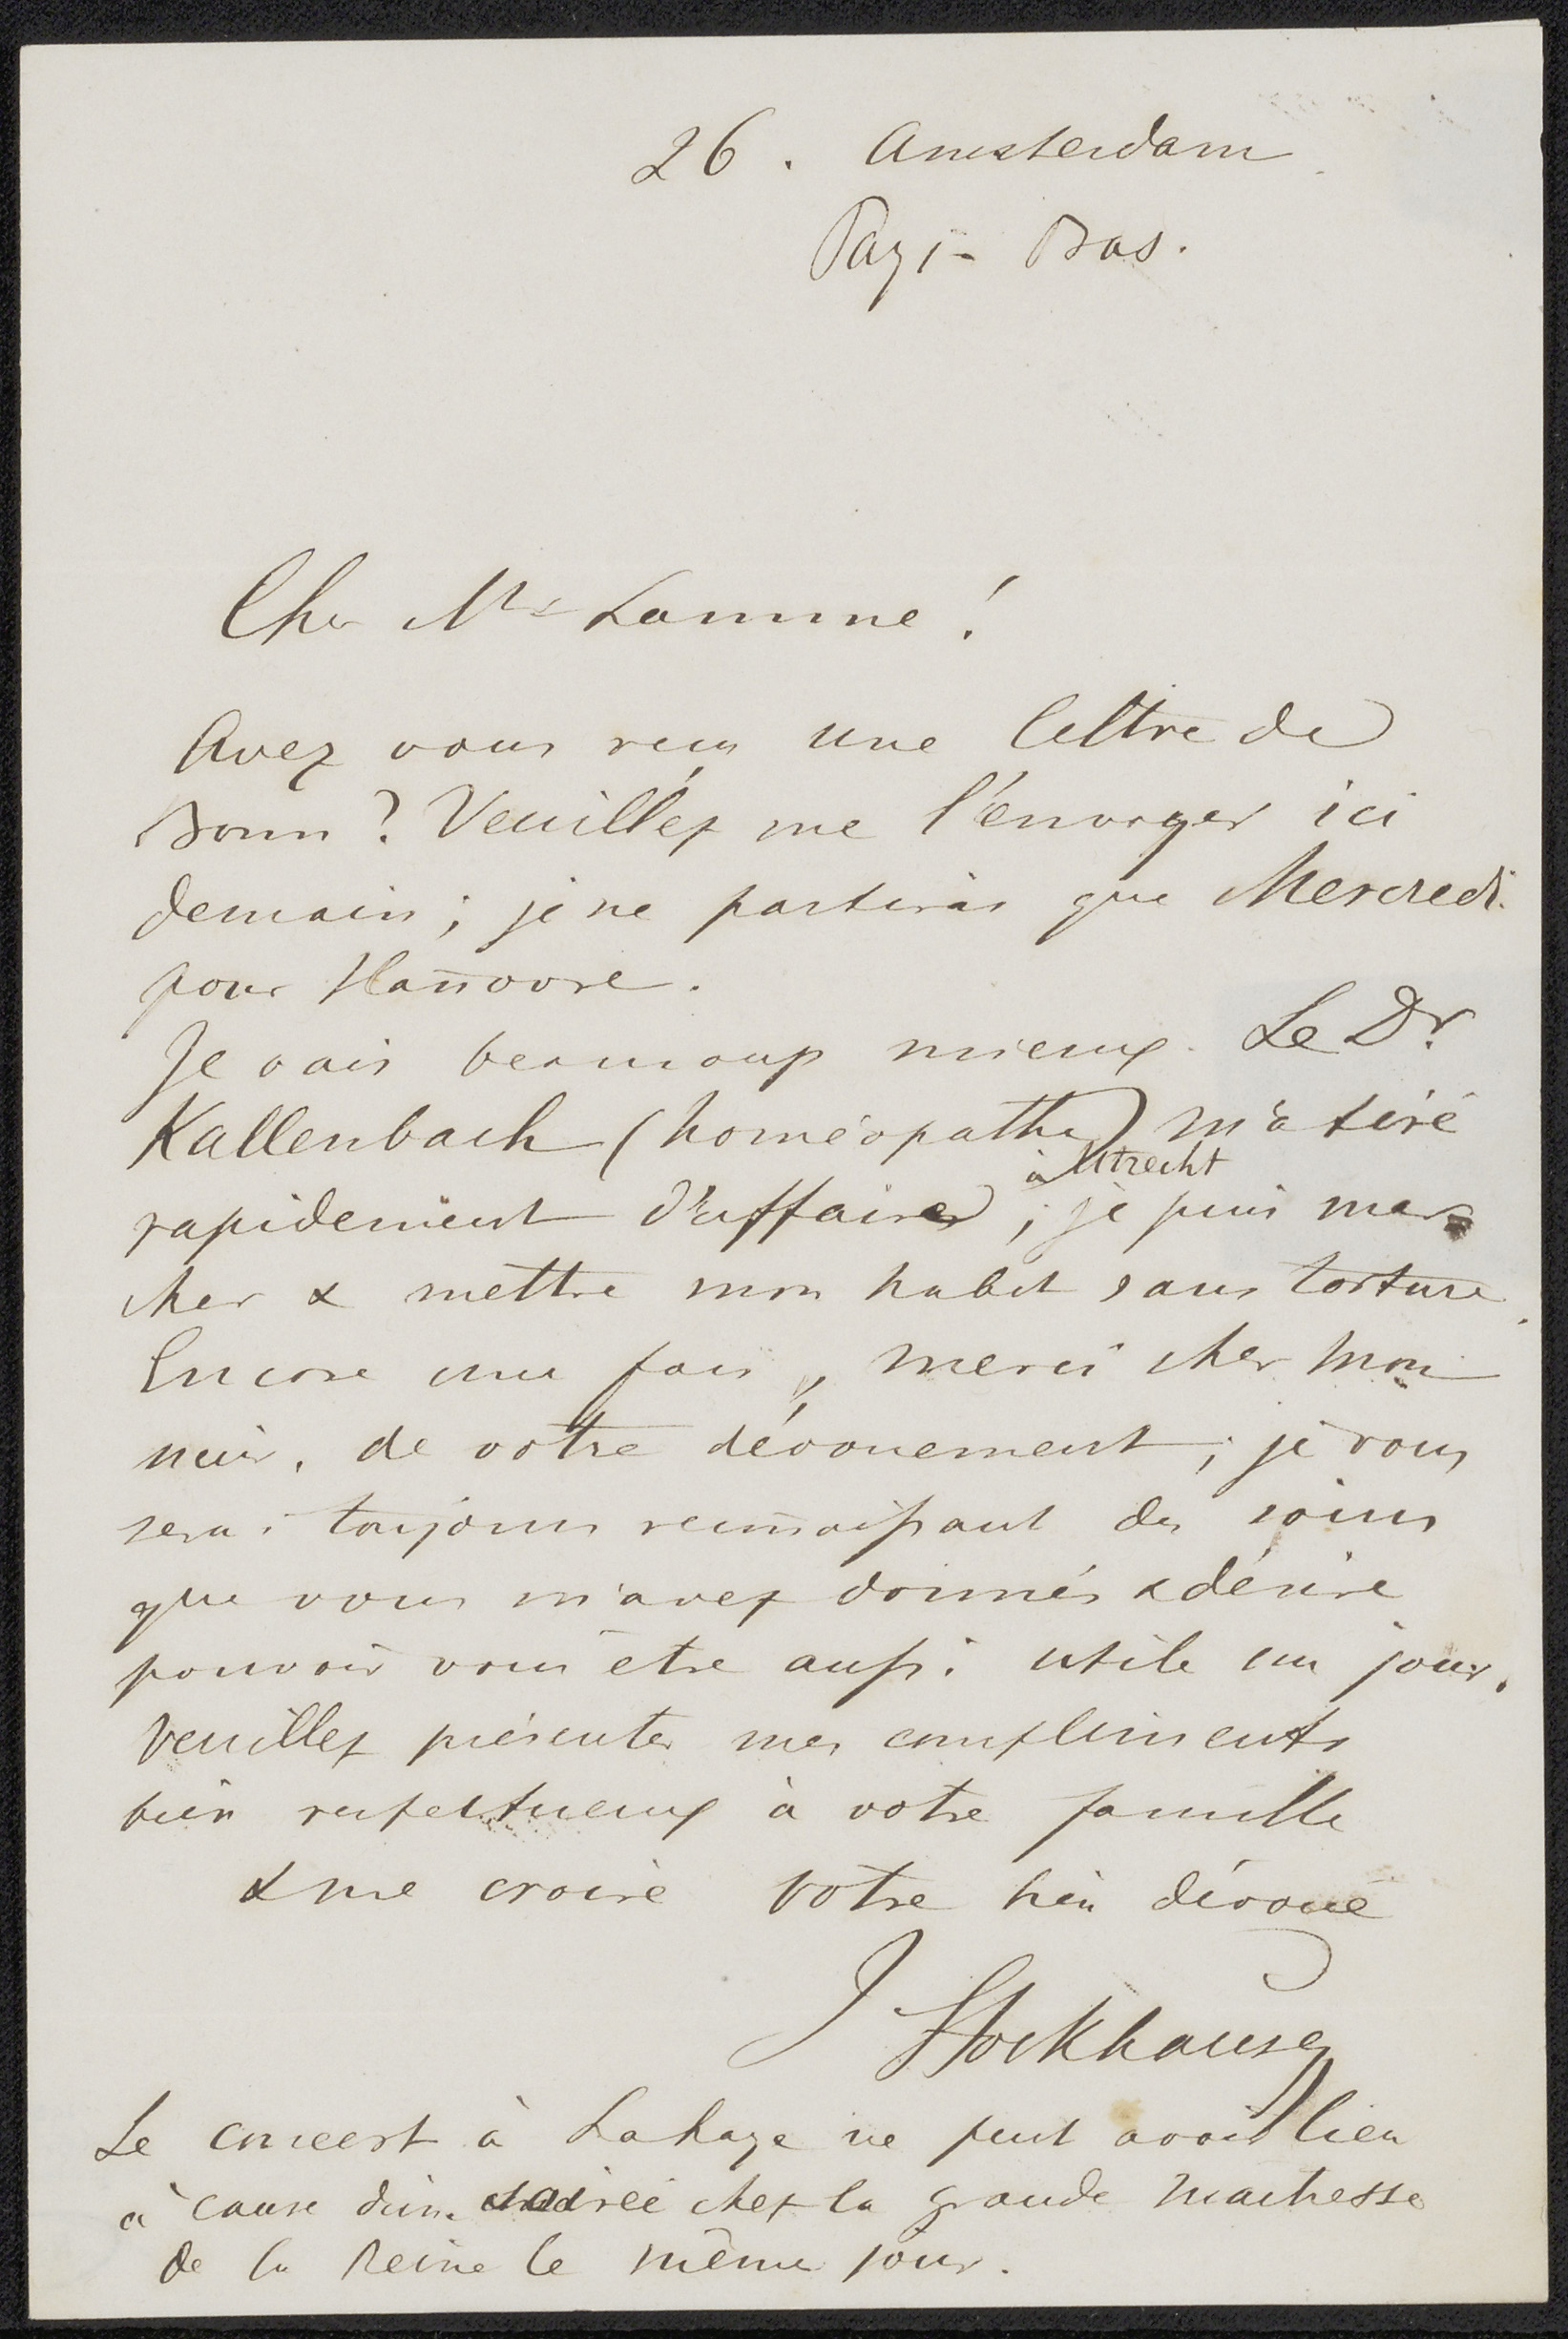 26. Amsterdam
Pays-Bas.
Cher Mr Lamme!
Avez vous reçu une lettre de
Bonn? Veuillez me l'envoyer ici
demain; je ne partirai que Mercredi
pour Hannovre.
Je vais beaucoup mieux. Le Dr.
Kallenbach (homéopathe) m'a tiré
rapidement d'affaires, à Utrecht; je puis mar
cher & mettre mon habit sans torture.
Encore une fois, merci cher Mon
sieur, de votre dévouement; je vous
serai toujours reconnaissant des soins
que vous m'avez donnés & désire
pouvoir vous être aussi utile un jour.
Veuillez présenter mes compliments
bien respectueux à votre famille
& me croire votre bien dévoué
J Stockhausen
Le concert à Lahaye ne peut avoir lieu
à cause d'une soirée chez la grande Maitresse
de la Reine le même jour.